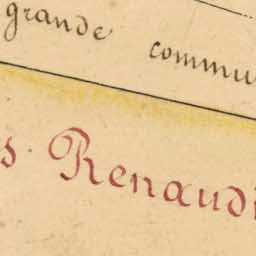 grande commu
s Renaudi